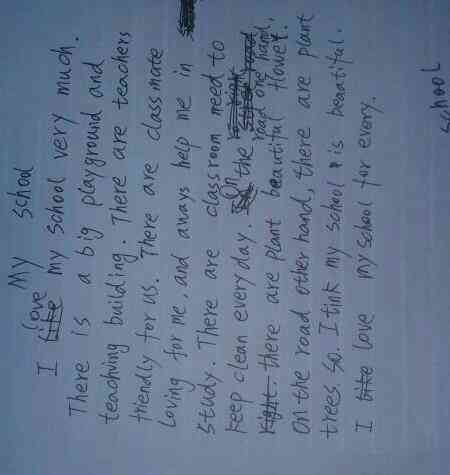 My school
I love my school very much.
There is a big playground and
teachving building. There are teachers
friendly for us. There are classmate
Loving for me, and aways help me in
study. There are classroom need to
keep clean every day. On the road one hand,
there are plant beautiful flower.
On the road other hand, there are plant
trees. So. I tink my school is beautiful.
I love my school for every.
school